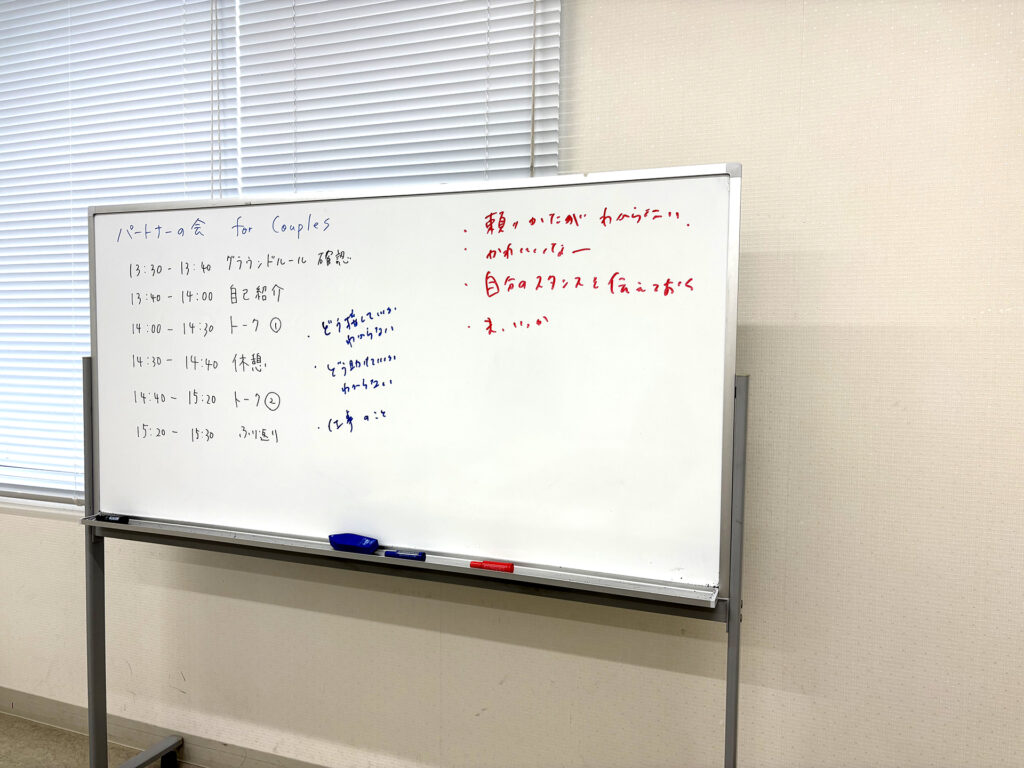 パートナーの会 for Couples
13:30 - 13:40 グラウンドルール 確認
13:40 - 14:00 自己紹介
14:00 - 14:30 トーク ①
14:30 - 14:40 休憩
14:40 - 15:20 トーク ②
15:20 - 15:30 ふり返り
・どう接していいか
わからない
・どう助けていいか
わからない
・仕事のこと
・頼りかたが わからない.
・自分のスタンスを伝えておく
・ま、いっか